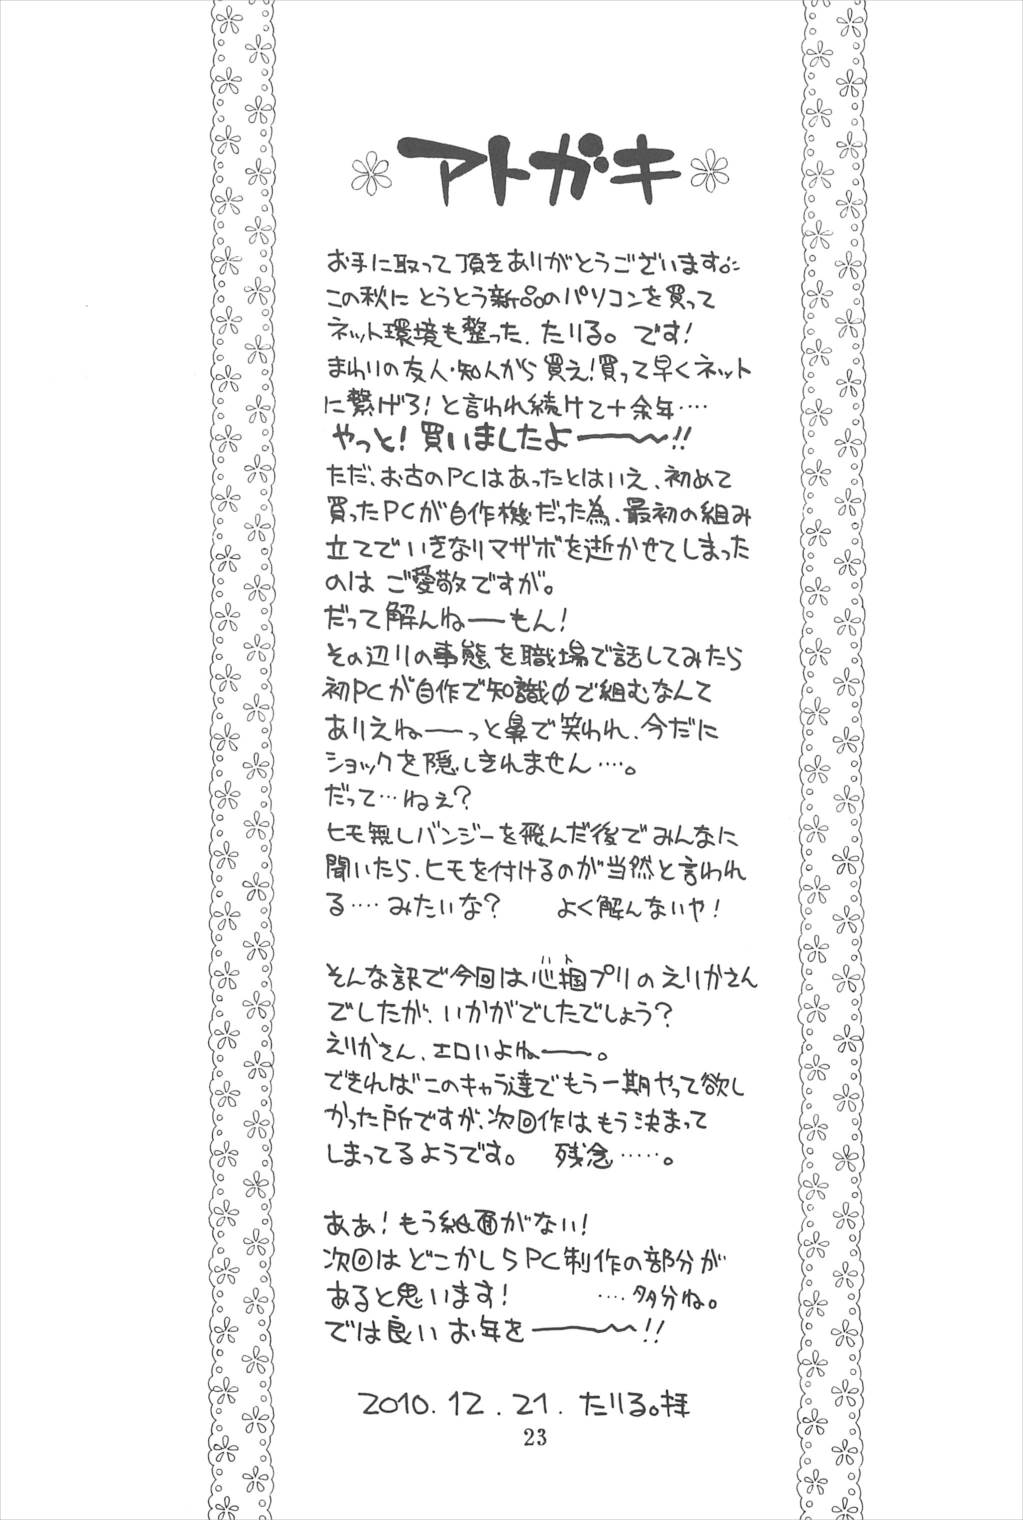 アトガキ
お手に取って頂きありがとうございます。
この秋に とうとう新品のパソコンを買って
ネット環境も整った、たりる。です!
まわりの友人・知人から 買え!買って早くネット
に繋げろ!と言われ続けて十余年‥‥
やっと!買いましたよー〜!!
ただ、お古のPCはあったとはいえ、初めて
買ったPCが自作機だった為、最初の組み
立てでいきなりマザボを逝かせてしまった
のは ご愛敬ですが。
だって解んねーもん!
その辺りの事態を職場で話してみたら
初PCが自作で知識φで組むなんて
ありえねーっと鼻で笑われ、今だに
ショックを隠しきれません‥‥。
だって…ねぇ?
ヒモ無しバンジーを飛んだ後でみんなに
聞いたら、ヒモを付けるのが当然と言われ
る‥‥みたいな? よく解んないや!
そんな訳で今回は心掴プリのえりかさん
でしたが、いかがでしたでしょう?
えりかさん、エロいよねー。
できればこのキャラ達でもう一期やって欲し
かった所ですが、次回作はもう決まって
しまってるようです。 残念‥‥‥。
ああ!もう紙面がない!
次回は どこかしらPC制作の部分が
あると思います! ‥‥多分ね。
では良い お年をー〜!!
2010.12.21.たりる。拝
23